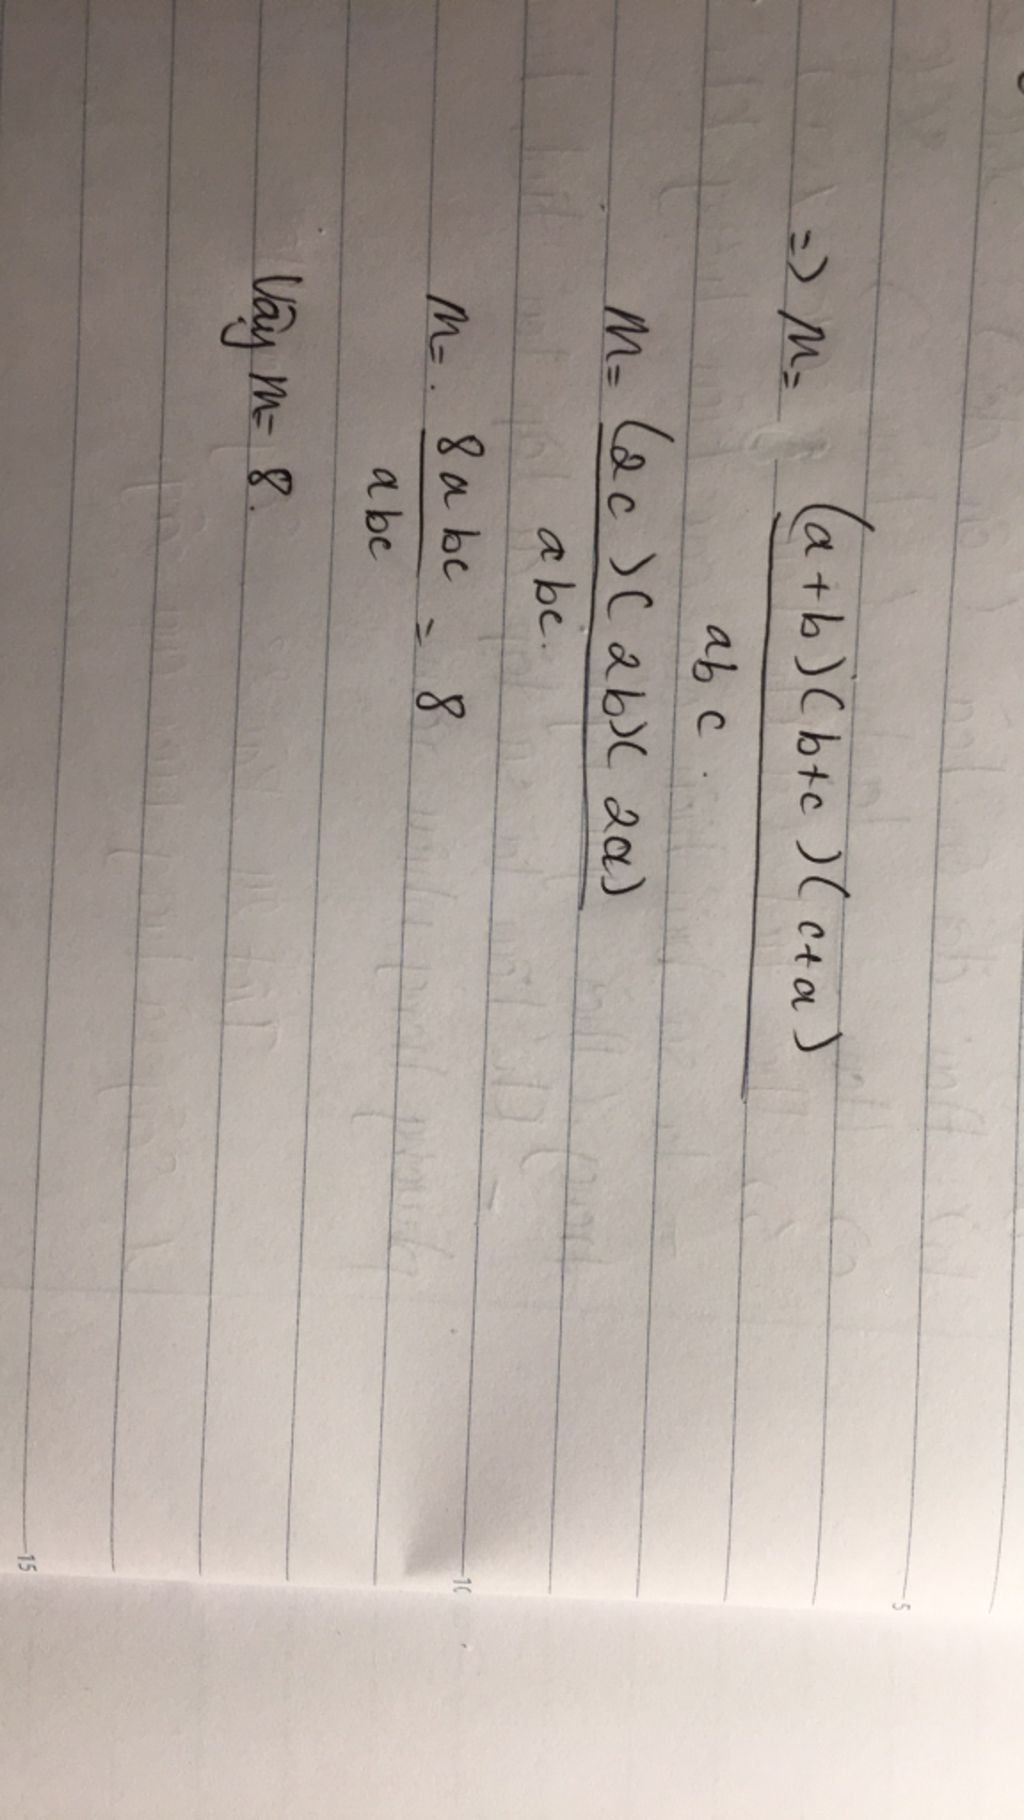 => M = (a+b)(b+c)(c+a)
abc.
M = (2c)(2b)(2a)
abc.
M = . 8abc = 8
abc
Vậy M = 8.
5
10
15